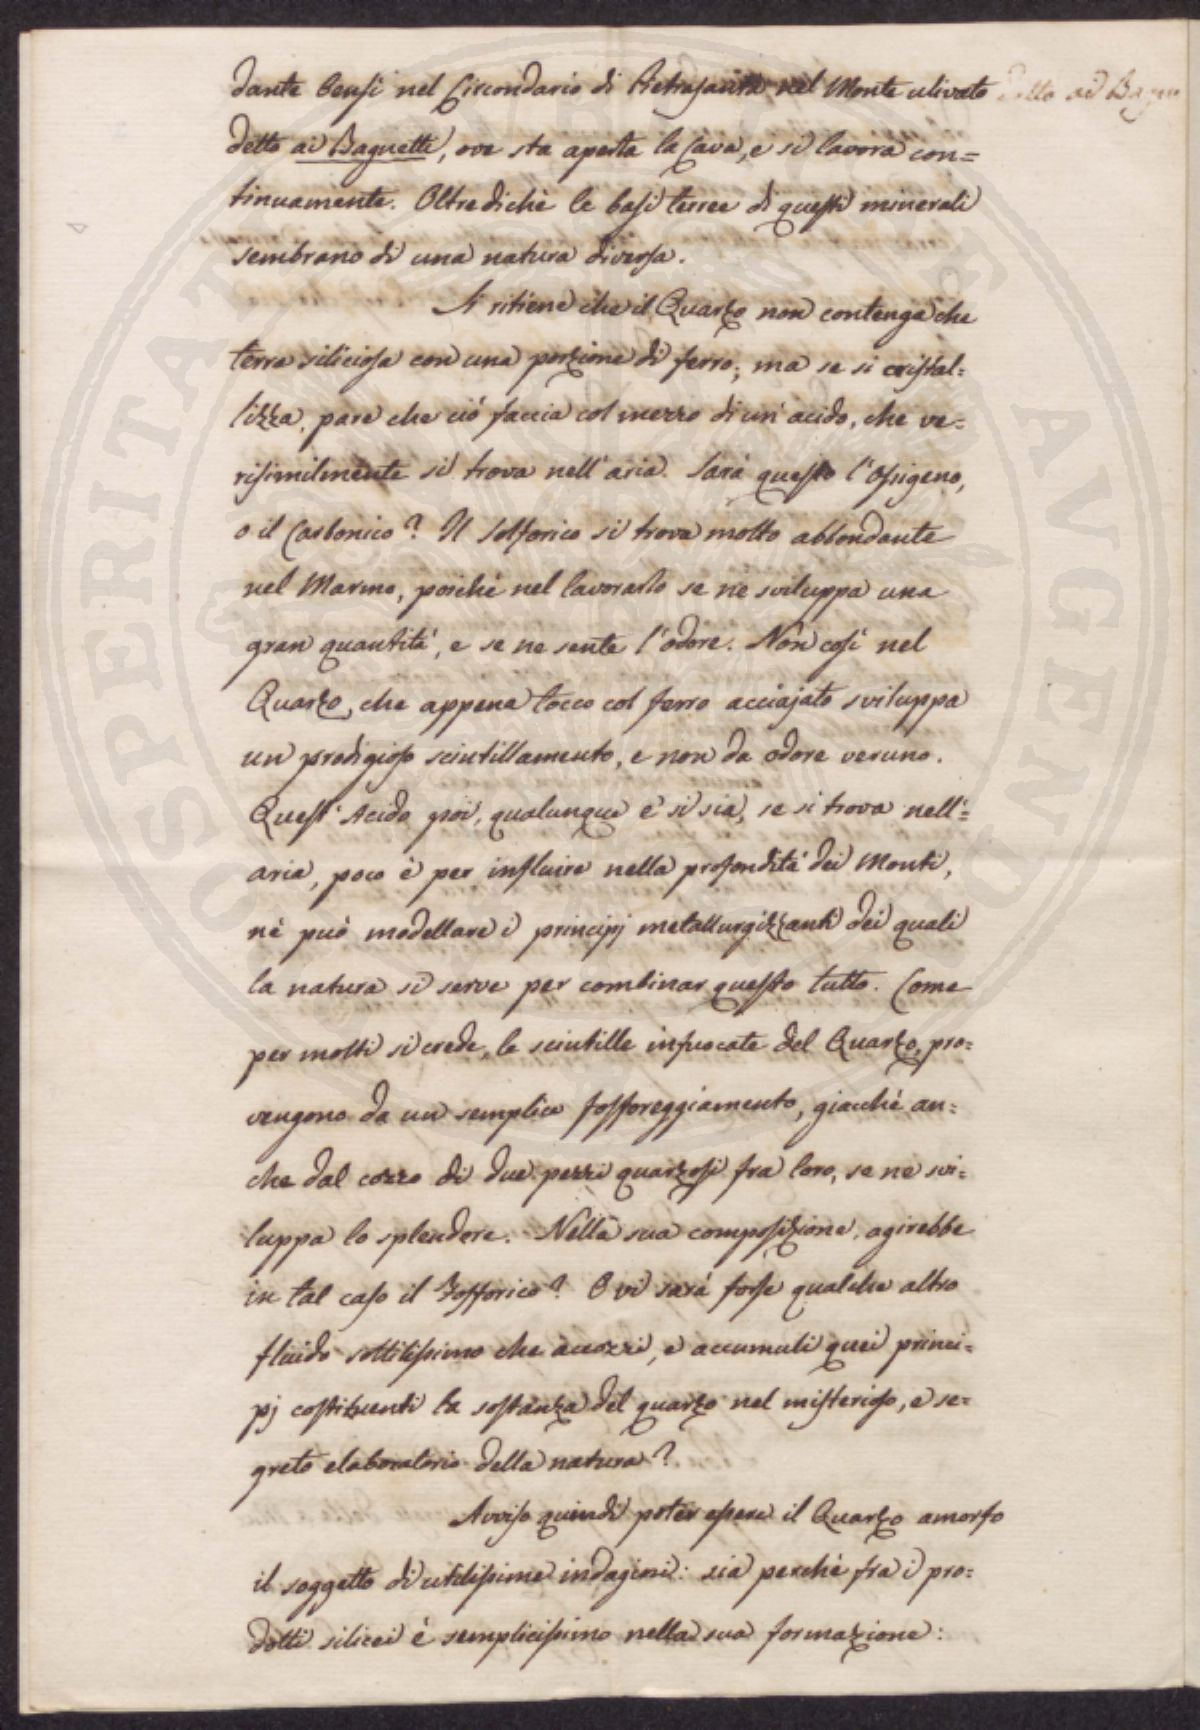 dante Bensi nel Circondario di Pietrasanta nel Monte ulivato detto ai Bagne
detto ai Baguetti, ove sta aperta la Cava, e si lavora con=
tinuamente. Oltredichè le basi terree di questi minerali
sembrano di una natura diversa.
Si ritiene che il Quarzo non contenga che
terra siliciosa con una porzione di ferro; ma se si cristal=
lizza, pare che ciò faccia col mezzo di un' acido, che ve=
risimilmente si trova nell' aria. Sarà questo l' Ossigeno,
o il Carbonico? Il Solforico si trova molto abbondante
nel Marmo, poichè nel lavorarlo se ne sviluppa una
gran quantità, e se ne sente l' odore. Non così nel
Quarzo, che appena tocco col ferro acciajato sviluppa
un prodigioso scintillamento, e non da odore veruno.
Quest' Acido poi, qualunque e' si sia, se si trova nell'=
aria, poco è per influire nella profondità dei Monti,
nè può modellare i principj metallurgizzanti dei quali
la natura si serve per combinar questo tutto. Come
per molti si crede, le scintille infuocate del Quarzo, pro=
vengono da un semplice fosforeggiamento, giacchè an=
che dal cozzo di due pezzi quarzosi fra loro, se ne svi=
luppa lo splendere. Nella sua composizione, agirebbe
in tal caso il Fosforico? O vi sarà forse qualche altro
fluido sottilissimo che accozzi, e accumuli quei princi=
pj costituenti la sostanza del quarzo nel misterioso, e se=
greto elaboratorio della natura?
Avviso quindi poter essere il Quarzo amorfo
il soggetto di utilissime indagini: sia perchè fra i pro=
dotti silicei è semplicissimo nella sua formazione: